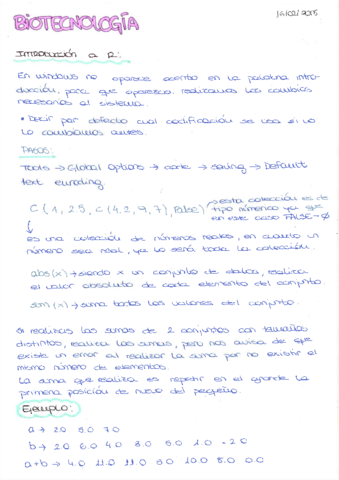 BIOTECNOLOGÍA
16/02/2015
INTRODUCCIÓN a R:
En windows no aparece acento en la palabra intro-
ducción, para que aparezca realizamos los cambios
necesarios al sistema.
• Decir por defecto cual codificación se usa si no
lo cambiamos antes.
PASOS:
Tools → Global Options → code → saving → Default
text encoding
C (1, 2.5, C (4.2, 9, 7), False) → esta colección es de
tipo númerico ya que
en este caso FALSE → 0
↓
es una colección de números reales, en cuanto un
número sea real, ya lo será toda la colección.
abs (x) → siendo x un conjunto de datos, realiza
el valor absoluto de cada elemento del conjunto.
sum (x) → suma todos los valores del conjunto.
Si realizas las sumas de 2 conjuntos con tamaños
distintos, realiza las sumas, pero nos avisa de que
existe un error al realizar la suma por no existir el
mismo número de elementos.
La suma que realiza es repetir en el grande la
primera posición de nuevo del pequeño.
Ejemplo:
a → 2.0 5.0 7.0
b → 2.0 6.0 4.0 3.0 5.0 1.0 -2.0
a+b → 4.0 11.0 11.0 5.0 10.0 8.0 0.0